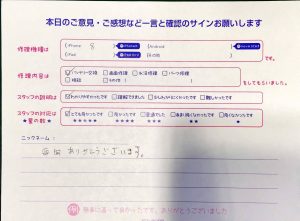 本日のご意見・ご感想など一言と確認のサインお願いします
修理機種は
iPhone 8
Android
iPad
その他
です。
修理内容は
バッテリー交換 画面修理 水没修理 パーツ修理
相談 その他
をしてもらいました。
スタッフの説明は
わかりやすかったです 理解できました 少しわかりにくかったです 難しかったです
スタッフの対応は
★星の数★
とても良かったです 良かったです 普通でした
★★★★★ ★★★★ ★★★ ★★ ★
ニックネーム:
ありがとうございます。
修理に迷って良かったです。ありがとうございました